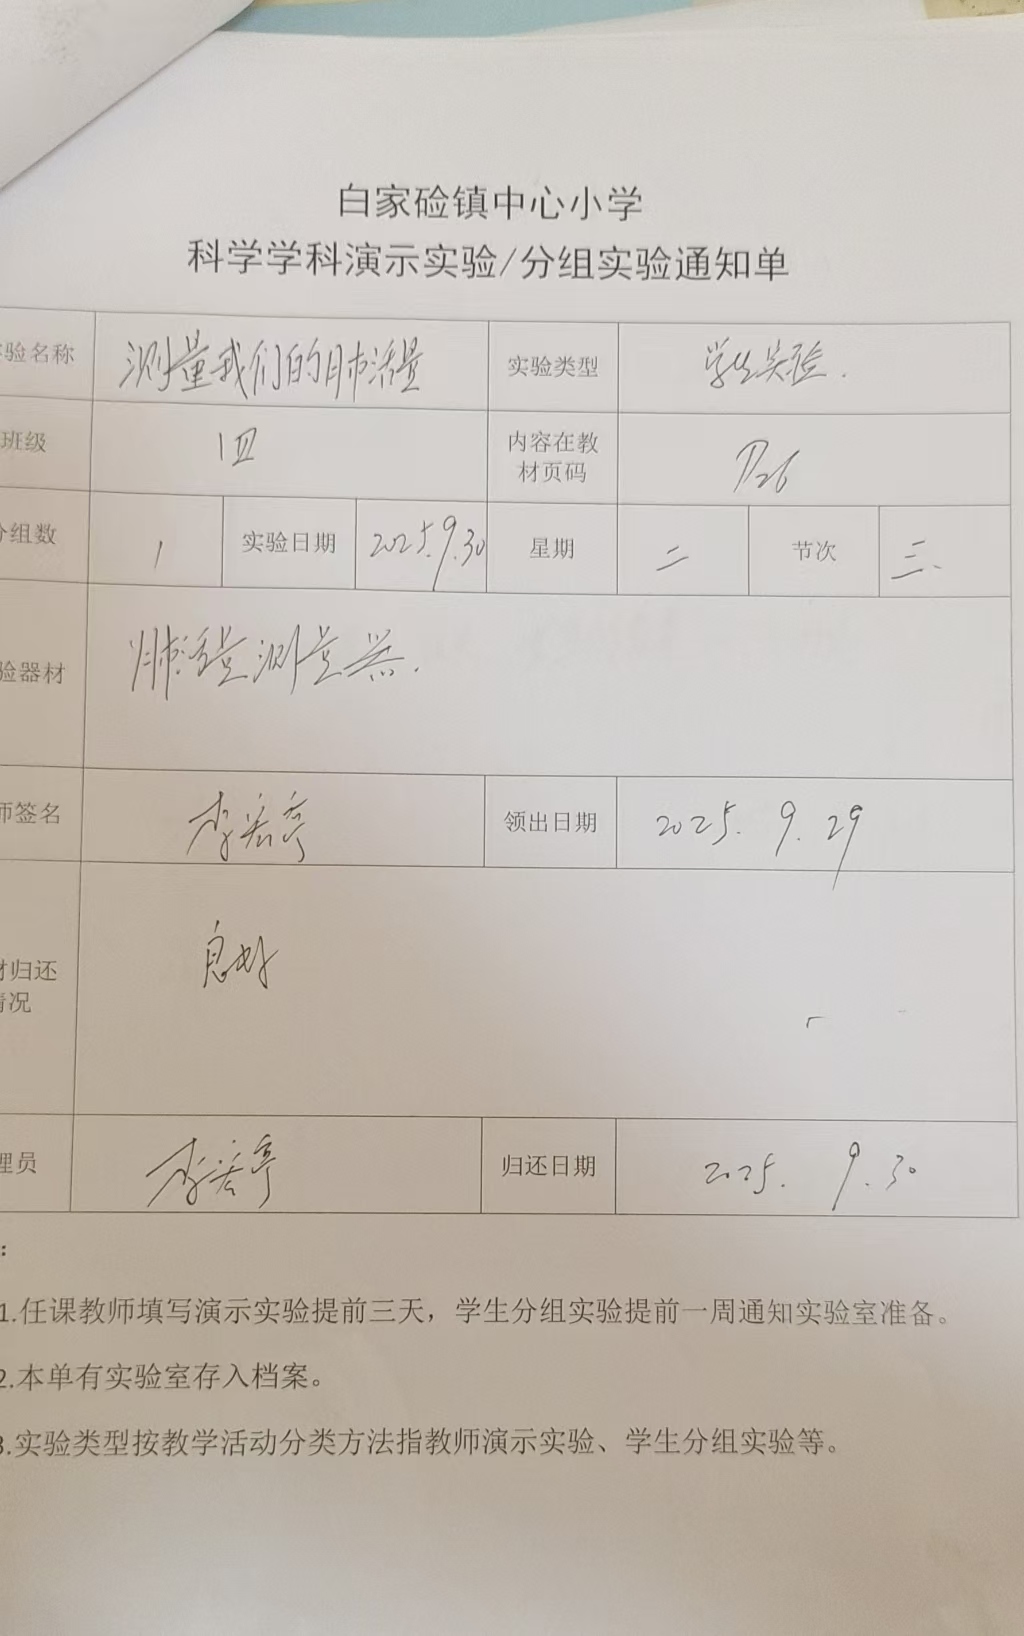 白家硷镇中心小学
科学学科演示实验/分组实验通知单
验名称 测量我们的肺活量 实验类型 学生实验.
班级 内容在教材页码 P26
分组数 1 实验日期 2025.9.30 星期 二 节次 三.
验器材 肺活量测量器.
师签名 领出日期 2025.9.29
材归还情况 良好
理员 归还日期 2025.9.30
:
1.任课教师填写演示实验提前三天，学生分组实验提前一周通知实验室准备。
2.本单有实验室存入档案。
3.实验类型按教学活动分类方法指教师演示实验、学生分组实验等。